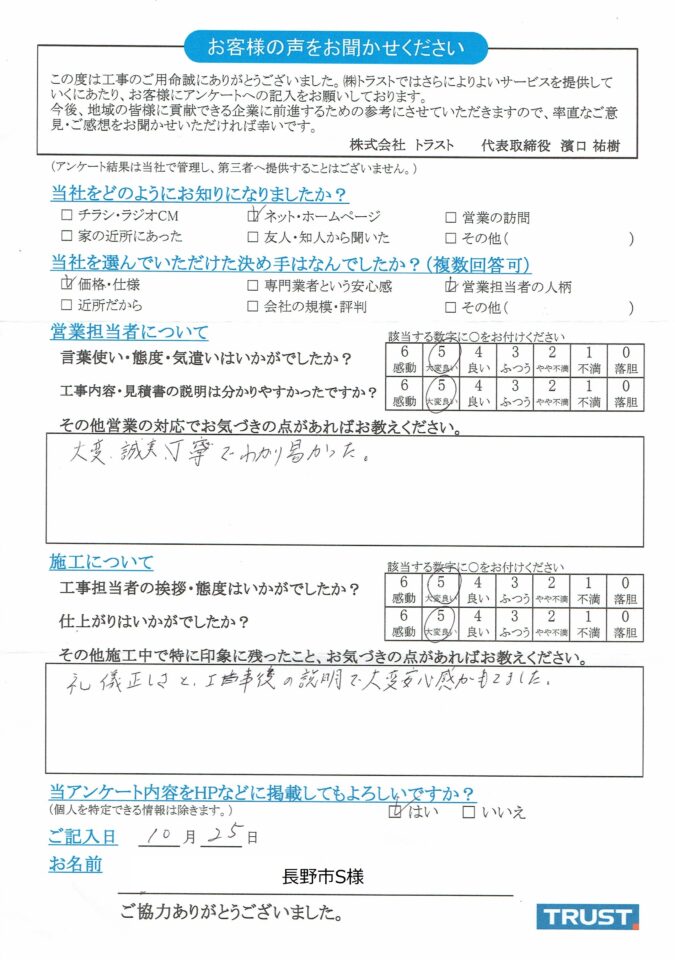 お客様の声をお聞かせください
この度は工事のご用命誠にありがとうございました。㈱トラストではさらによりよいサービスを提供して
いくにあたり、お客様にアンケートへの記入をお願いしております。
今後、地域の皆様に貢献できる企業に前進するための参考にさせていただきますので、率直なご意
見・ご感想をお聞かせいただければ幸いです。
株式会社 トラスト 代表取締役 濱口 祐樹
(アンケート結果は当社で管理し、第三者へ提供することはございません。)
当社をどのようにお知りになりましたか?
□ チラシ・ラジオCM ☑ ネット・ホームページ □ 営業の訪問
□ 家の近所にあった □ 友人・知人から聞いた □ その他( )
当社を選んでいただけた決め手はなんでしたか?(複数回答可)
☑ 価格・仕様 □ 専門業者という安心感 ☑ 営業担当者の人柄
□ 近所だから □ 会社の規模・評判 □ その他( )
営業担当者について 該当する数字に○をお付けください
言葉使い・態度・気遣いはいかがでしたか? 6 5 4 3 2 1 0
感動 大変良い 良い ふつう やや不満 不満 落胆
工事内容・見積書の説明は分かりやすかったですか? 6 5 4 3 2 1 0
感動 大変良い 良い ふつう やや不満 不満 落胆
その他営業の対応でお気づきの点があればお教えください。
大変、誠実、丁寧でわかり易かった。
施工について 該当する数字に○をお付けください
工事担当者の挨拶・態度はいかがでしたか? 6 5 4 3 2 1 0
感動 大変良い 良い ふつう やや不満 不満 落胆
仕上がりはいかがでしたか? 6 5 4 3 2 1 0
感動 大変良い 良い ふつう やや不満 不満 落胆
その他施工中で特に印象に残ったこと、お気づきの点があればお教えください。
礼儀正しさと、工事後の説明で大変安心感がもてました。
当アンケート内容をHPなどに掲載してもよろしいですか?
(個人を特定できる情報は除きます。) ☑ はい □ いいえ
ご記入日 10 月 25 日
お名前
長野市S様
ご協力ありがとうございました。
TRUST.